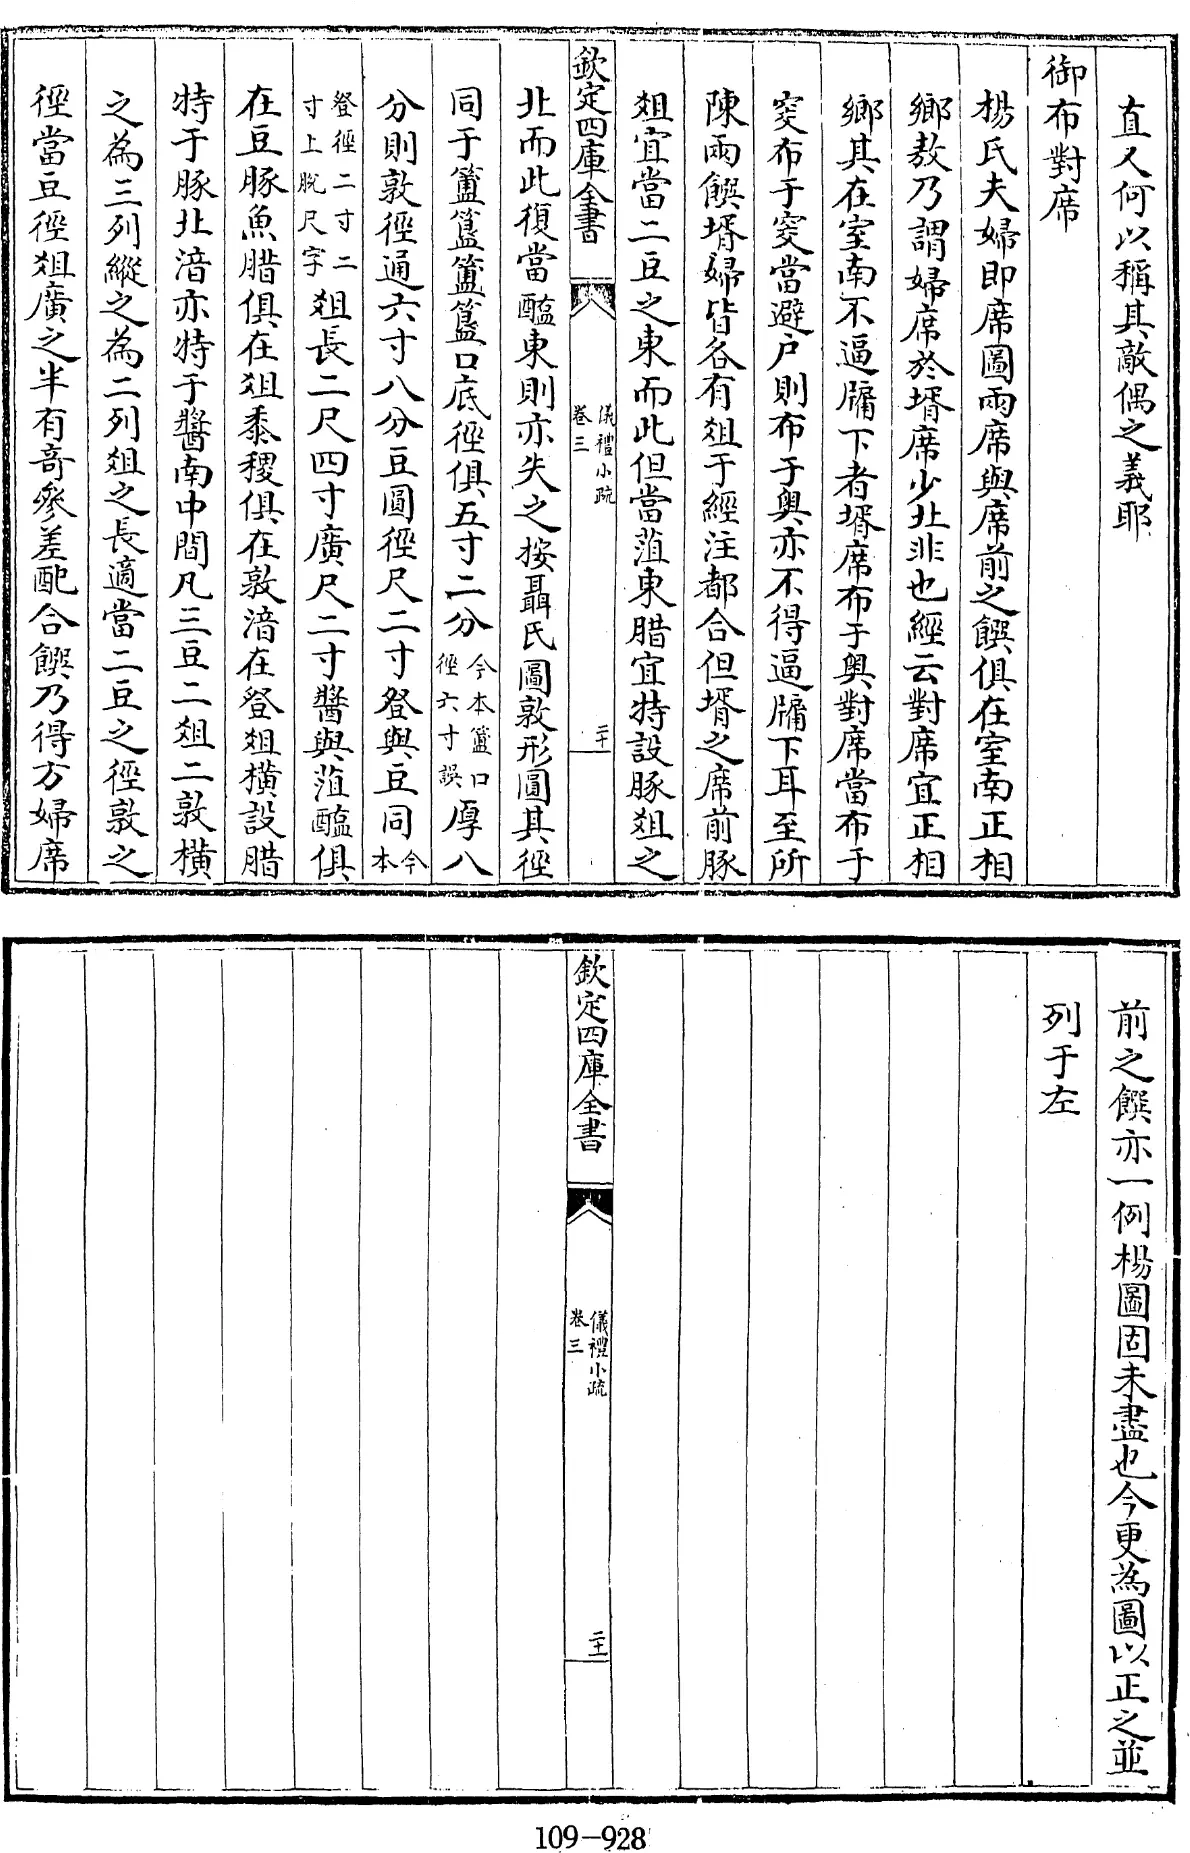 直又何以稱其敵偶之義耶
御布對席
楊氏夫婦即席圖兩席與席前之饌俱在室南正相
鄉敖乃謂婦席於壻席少北非也經云對席宜正相
鄉其在室南不逼牖下者壻席布于奥對席當布于
窔布于窔當避户則布于奥亦不得逼牖下耳至所
陳兩饌壻婦皆各有俎于經注都合但壻之席前豚
俎宜當二豆之東而此但當菹東腊宜特設豚俎之
欽定四庫全書
儀禮小疏
卷三
二十
北而此復當醢東則亦失之按聶氏圖敦形圓其徑
同于簠簋簠簋口底徑俱五寸二分今本簠口徑六寸誤厚八
分則敦徑通六寸八分豆圓徑尺二寸登與豆同今本
登徑二寸二寸上脫尺字俎長二尺四寸廣尺二寸醬與菹醢俱
在豆豚魚腊俱在俎黍稷俱在敦湇在登俎橫設腊
特于豚北湇亦特于醬南中間凡三豆二俎二敦橫
之為三列縱之為二列俎之長適當二豆之徑敦之
徑當豆徑俎廣之半有奇參差配合饌乃得方婦席
前之饌亦一例楊圖固未盡也今更為圖以正之並
列于左
欽定四庫全書
儀禮小疏
卷三
二十一
109-928